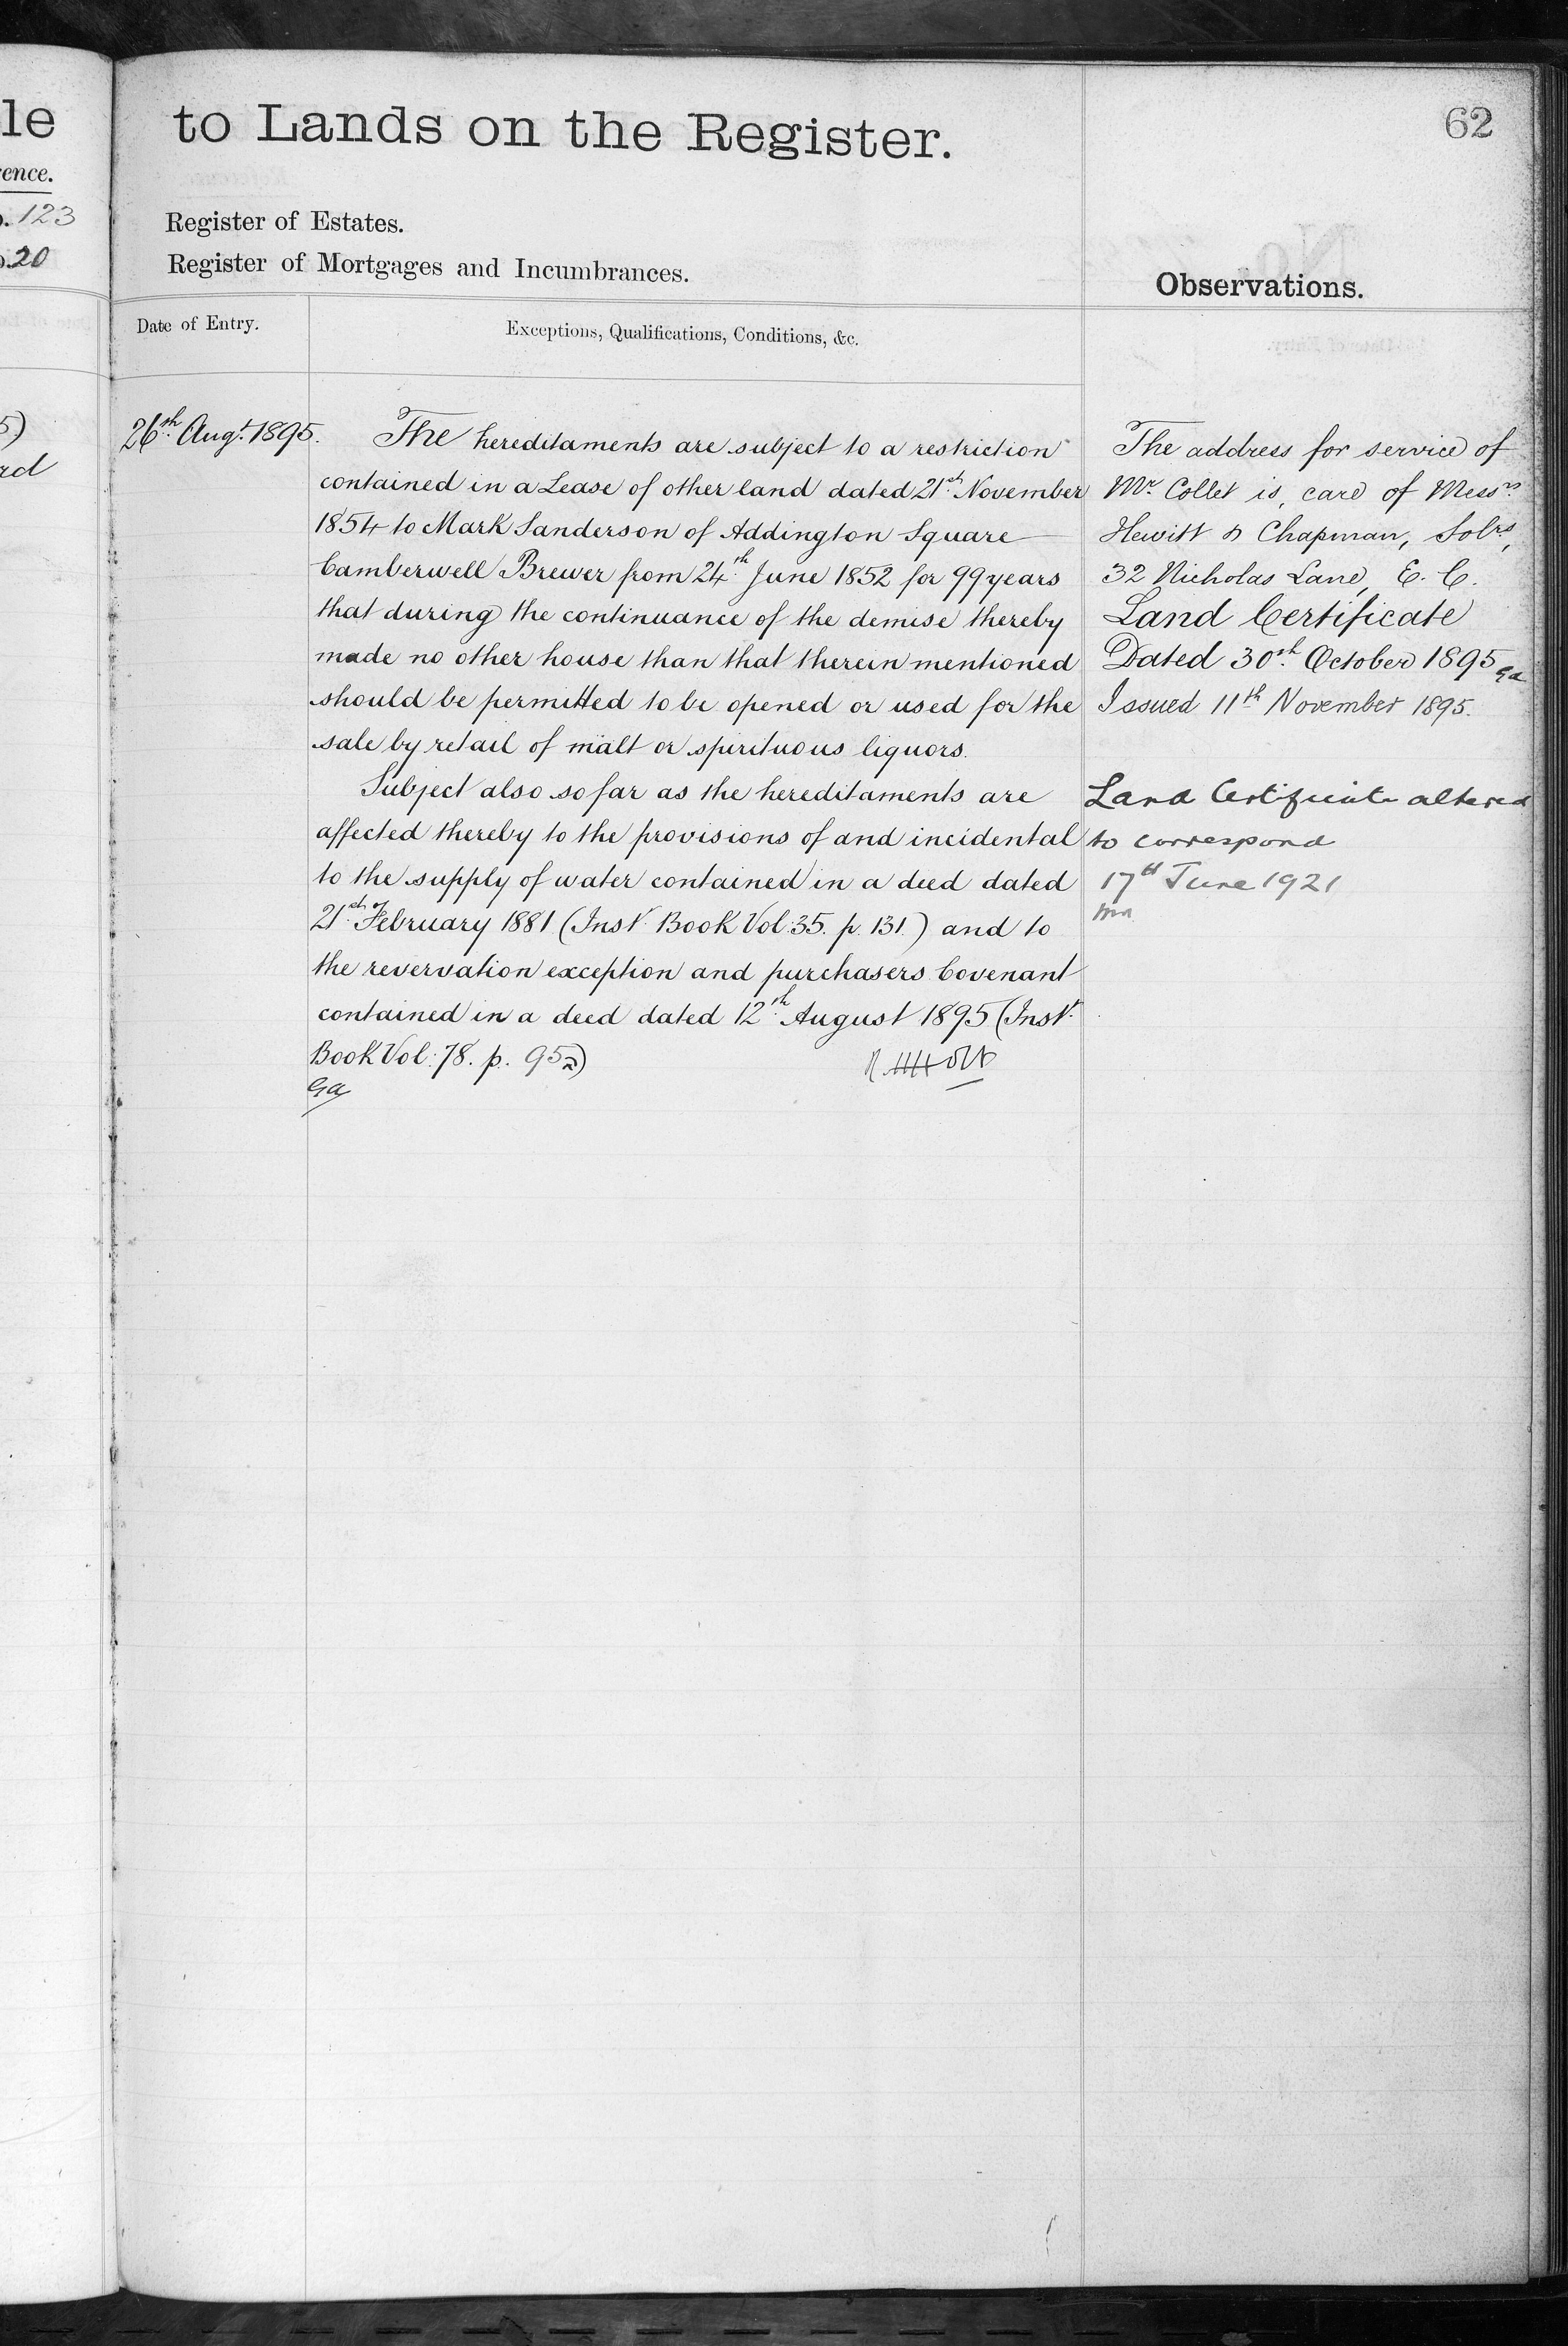 le
ence.
. 123
. 20
5)
rd
to Lands on the Register.
62
Register of Estates.
Register of Mortgages and Incumbrances.
Observations.
Date of Entry.
Exceptions, Qualifications, Conditions, &c.
26th Augt. 1895.
The hereditaments are subject to a restriction
contained in a Lease of other land dated 21st November
1854 to Mark Sanderson of Addington Square
Camberwell Brewer from 24th June 1852 for 99 years
that during the continuance of the demise thereby
made no other house than that therein mentioned
should be permitted to be opened or used for the
sale by retail of malt or spirituous liquors.
Subject also so far as the hereditaments are
affected thereby to the provisions of and incidental
to the supply of water contained in a deed dated
21st February 1881 (Inst. Book Vol: 35. p. 131.) and to
the revervation exception and purchasers Covenant
contained in a deed dated 12th August 1895 (Inst.
Book Vol: 78. p. 95)
Ga
The address for service of
Mr. Collet is, care of Messrs.
Hewitt & Chapman, Solrs,
32 Nicholas Lane, E. C.
Land Certificate
Dated 30th October 1895 Ga
Issued 11th November 1895.
Land Certificate altered
to correspond
17th June 1921